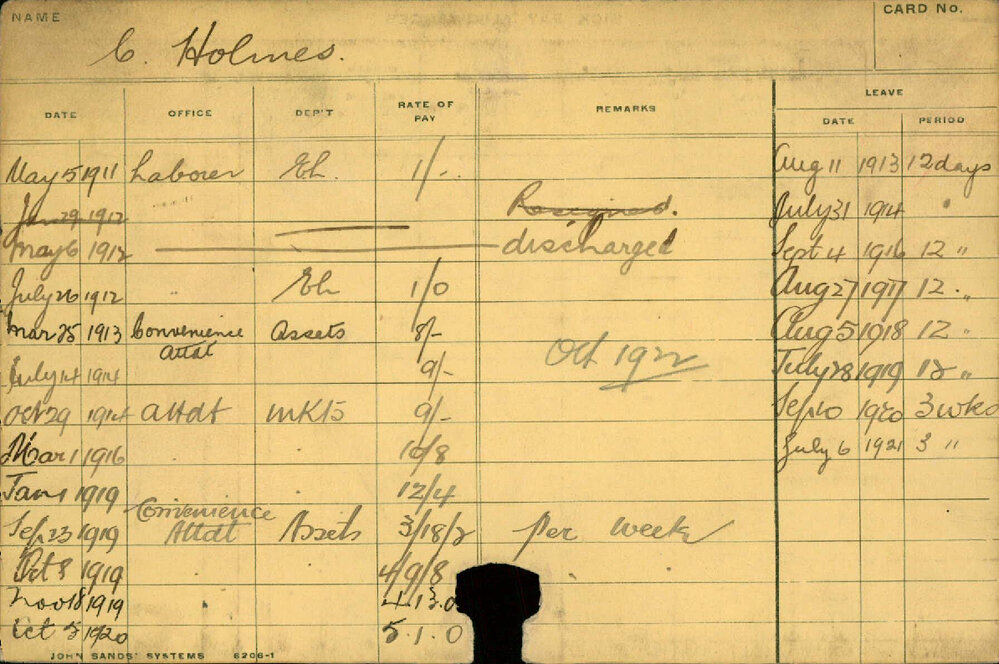 NAME
CARD No.
C. Holmes.
DATE OFFICE DEP'T RATE OF PAY REMARKS LEAVE
DATE PERIOD
May 5 1911 Laborer Eh. 1/-. Aug 11 1913 12 days
Jan 29 1912 Resigned. July 31 1914 "
May 6 1912 discharged Sept 4 1916 12 "
July 26 1912 Eh 1/0 Aug 27 1917 12 "
Mar 25 1913 Convenience Attdt Assets 8/- Aug 5 1918 12 "
Oct 1922
July 14 1914 9/- July 28 1919 12 "
Oct 29 1914 Attdt MKts 9/- Sep 10 1920 3 wks
Mar 1 1916 10/8 July 6 1921 3 "
Jan 1 1919 12/4
Sep 23 1919 Convenience Attdt Assets 3/18/2 per week
Oct 8 1919 4/9/8
Nov 18 1919 4.13.0
Oct 5 1920 5.1.0
JOHN SANDS' SYSTEMS 6206-1